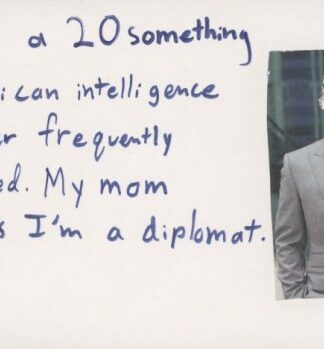 a 20 something
ican intelligence
frequently
My mom
I'm a diplomat.